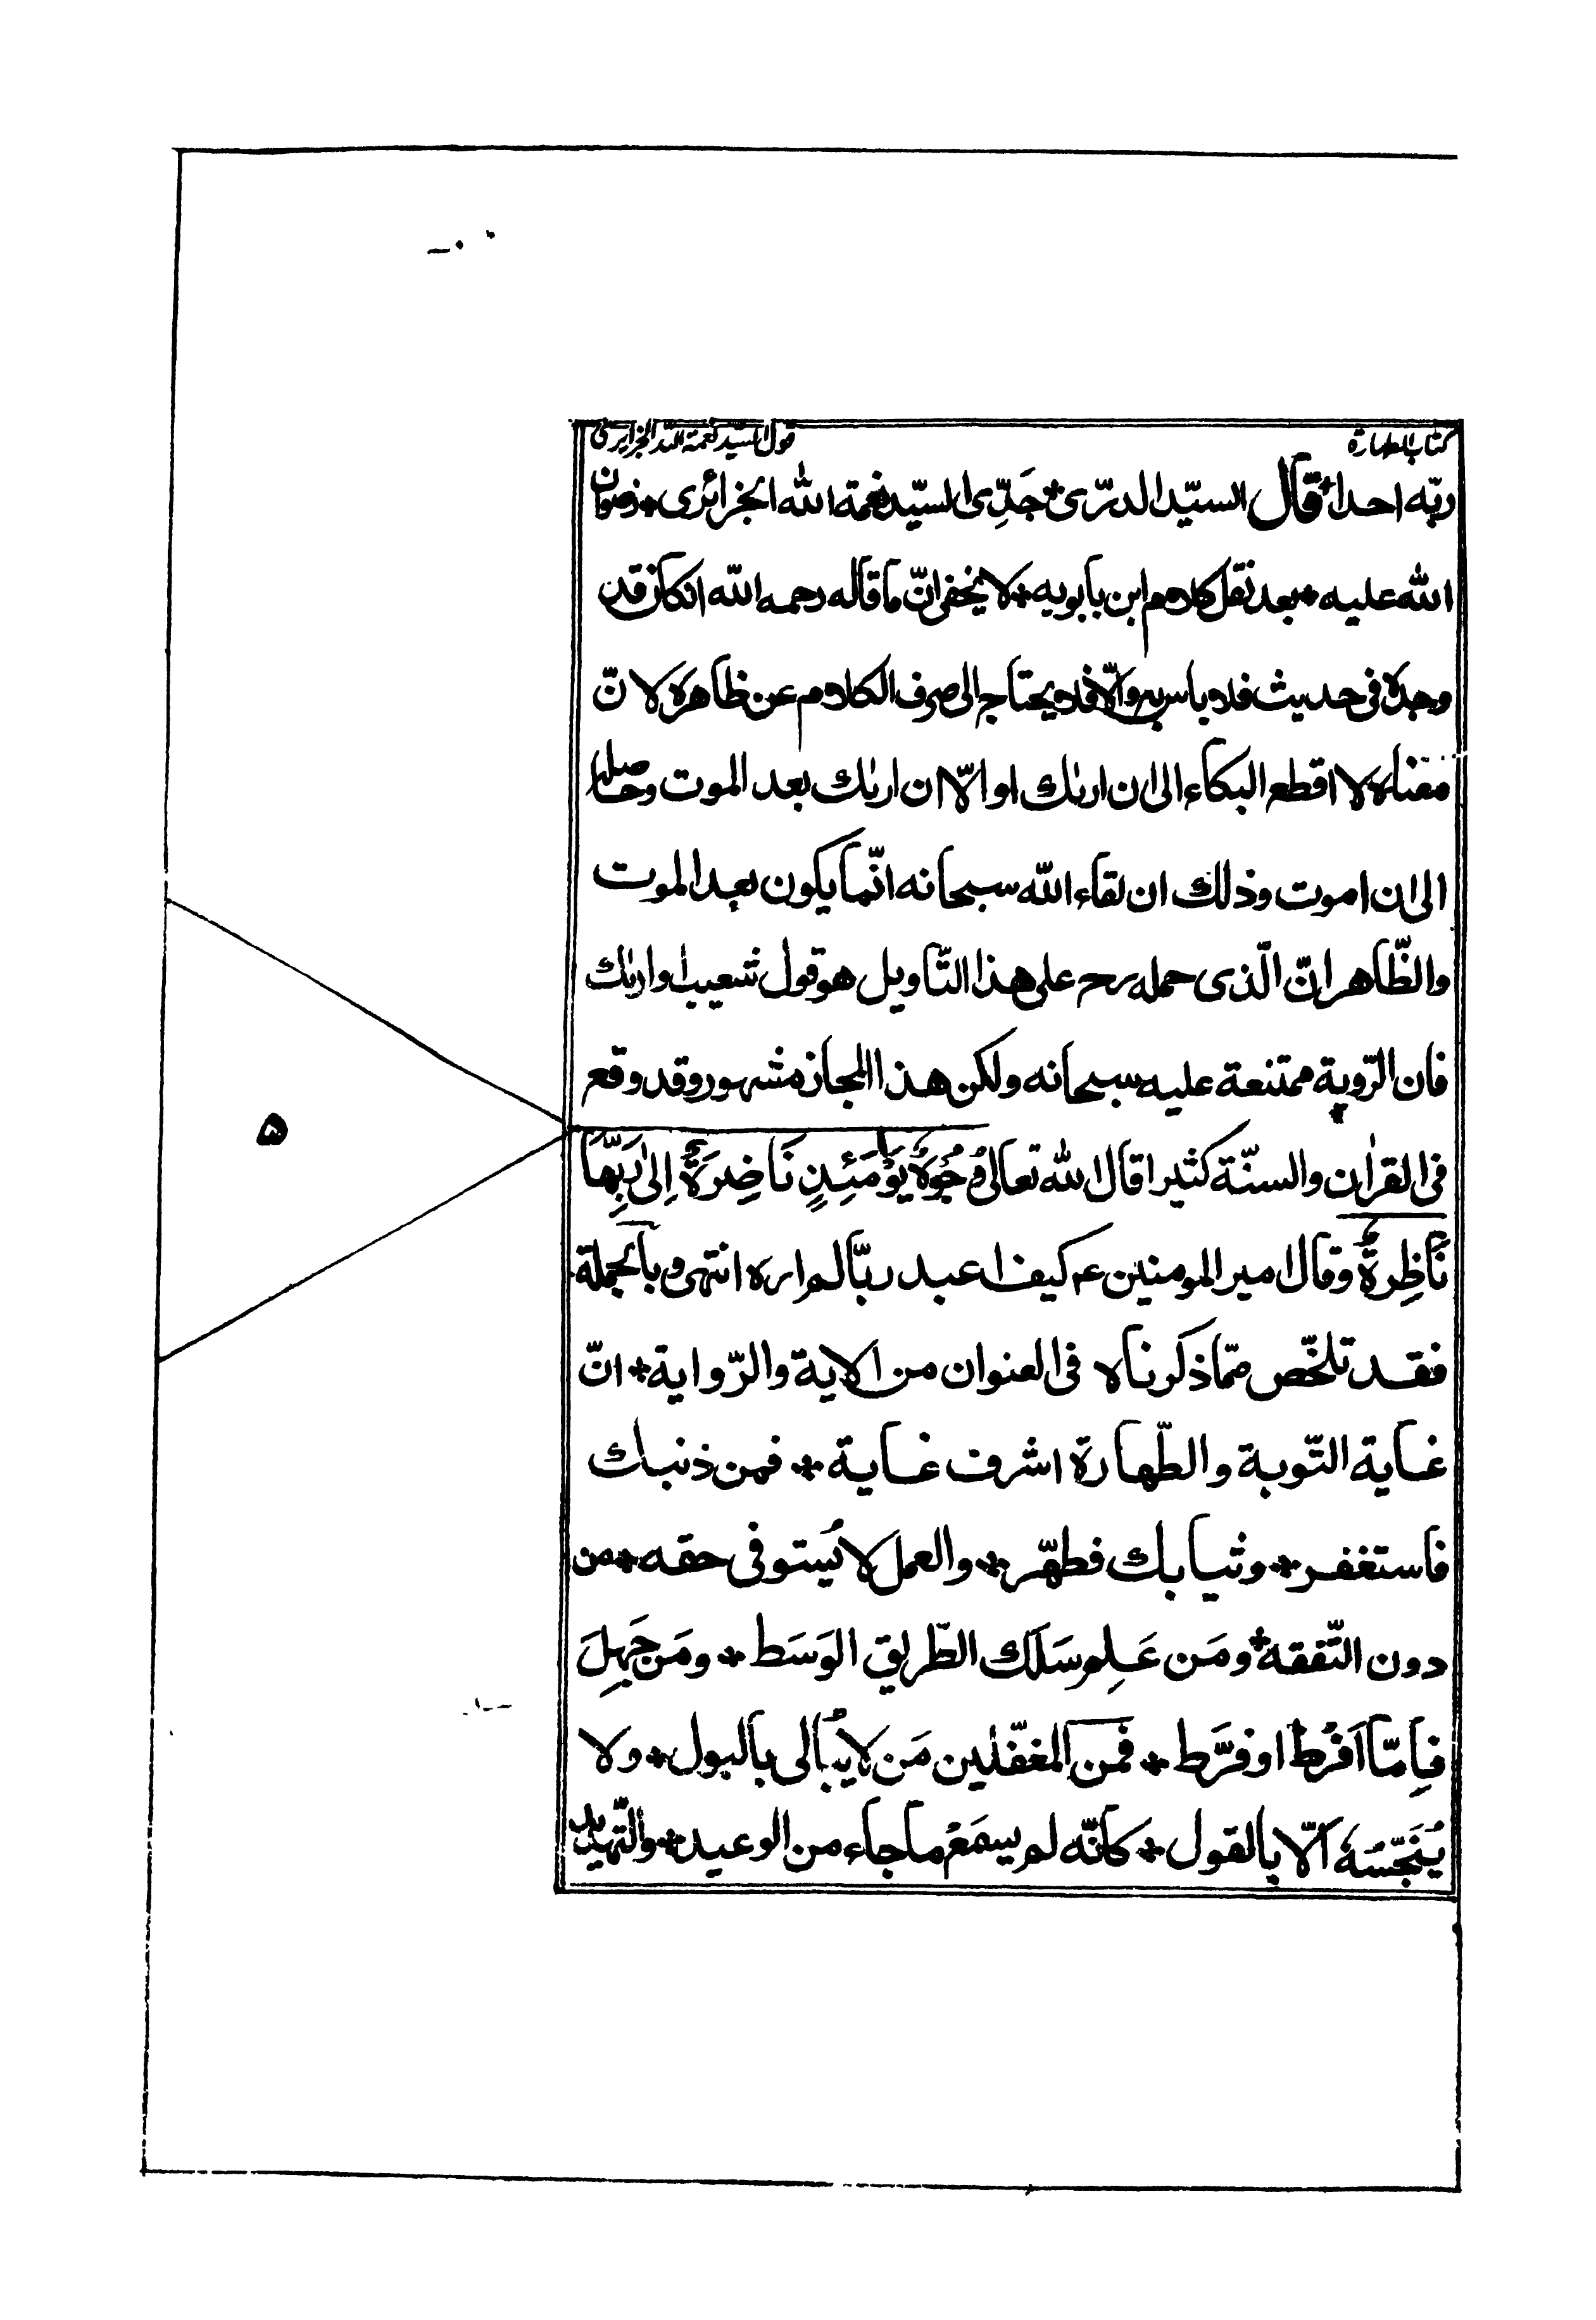 كتاب الطهارة
قول السيد نعمة الله الجزايرى
ربّه احدا * قال السيّد الدرّى * جَدِّى السيّد نعمة الله الجزائرى * رضوان
الله عليه * بعد نقل كلام ابن بابويه * لا يخفى انّ ما قاله رحمه الله ان كان قد
وجده فى حديث فلا باس به والّا فلا يحتاج الى صرف الكلام عن ظاهره لانّ
معناه لا اقطع البكاء الى ان اراك او الّا ان اراك بعد الموت وحاصله
الى ان اموت وذلك ان لقاء الله سبحانه انّما يكون بعد الموت
والظّاهر انّ الّذى حمله رح على هذا التّاويل هو قول شعيب او اراك
فان الرّوية ممتنعة عليه سبحانه ولكن هذا المجاز مشهور وقد وقع
فى القرآن والسنّة كثيرا قال الله تعالى وُجُوهٌ يَوْمَئِذٍ نَاضِرَةٌ إِلىٰ رَبِّهَا
نَاظِرَةٌ وقال امير المومنين ع كيف اعبد ربّا لم اره انتهى وبالجملة
فقد تلخّص ممّا ذكرناه فى العنوان من الاية والرّواية * انّ
غاية التّوبة والطّهارة اشرف غاية * فمن ذنبك
فاستغفر * وثيابك فطهّر * والعمل لا يُستوفى حقه * من
دون التّفقه * ومَن عَلِم سَلَك الطّريق الوَسَط * ومَن جَهِلَ
فاِمّا اَفْرَط او فرَّط * فمن المغفّلين مَن لا يُبالى بالبول * ولا
يُنَجِّسُهُ الّا بالقول * كانّه لم يسمَعْ ما جاء من الوعيد * والتّهديد
۵